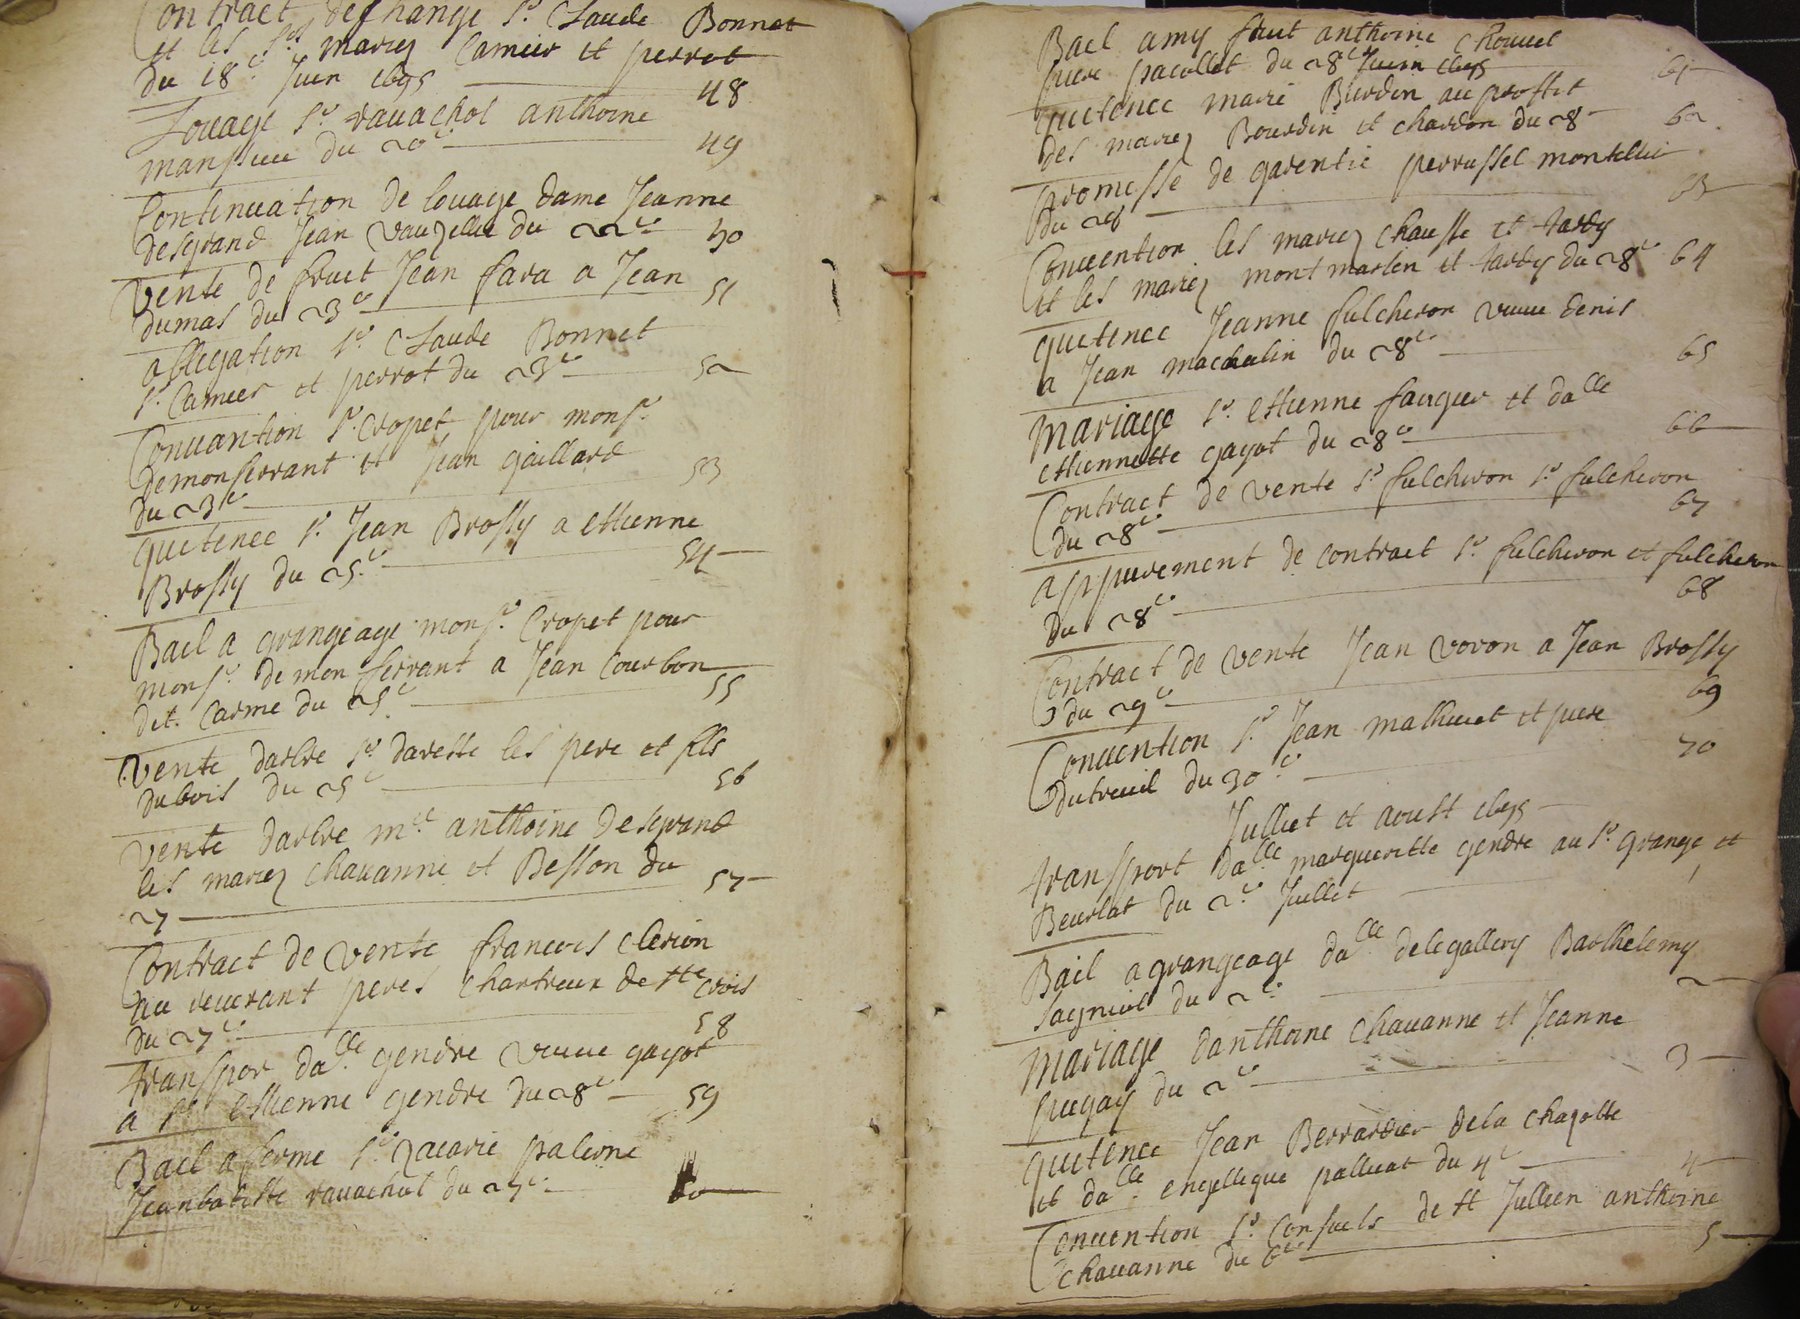 Contract deschange Sr. Claude Bonnet
et les Srs mariez Camier et perrot
du 18e Juin 1695
48
Louage Sr ravachol anthoine
mansieu du 20e
49
Continuation de louage dame Jeanne
desgrand Jean vauzelle du 22e 50
Vente de fruit Jean fara a Jean
dumas du 23e 51
obligation Sr. Claude Bonnet
Sr. Camier et perrot du 23e 52
Convantion Sr. Cropet pour monsr.
demonferrant et Jean gaillard
du 23e 53
quitence Sr. Jean Brossy a ettienne
Brossy du 25e 54
Bail a grangeage monsr. Cropet pour
monsr. de monferrant a Jean Courbon
dit. Carme du 25e 55
Vente darbre Sr dareste les pere et fils
dubois du 25e 56
Vente darbre me anthoine desgrand
les mariez chavanne et Besson du
27 57
Contract de vente francois clerion
au reverant peres chartreux de ste crois
du 27e 58
transpor dalle gendre veuve gayot
a Sr ettienne gendre du 28e 59
Bail a ferme Sr zacarie palerne
Jeanbatiste ravachol du 27e 60
Bail amy fruit anthoine chovet
piere pacallet du 28e Juin 1695
61
quitence marie Burdin au proffit
des mariez Bourdin et chardon du 28 62
promesse de garentie perrussel montellier
du 28 63
Convention les mariez chausse et tardy
et les mariez montmarten et tardy du 28e 64
quitence Jeanne fulcheron veuve denis
a Jean machalin du 28e 65
mariage Sr. ettienne faugier et dalle
ettiennette gayot du 28e 66
Contract de vente Sr fulchiron Sr. fulcheron
du 28e 67
aspurement de contract Sr. fulcheron et fulcheron
du 28e 68
Contract de vente Jean voron a Jean Brossy
du 29e 69
Convention Sr. Jean mathevet et piere
dutreuil du 30e 70
Julliet et aoust 1695
transport dalle margueritte gendre au Sr. grange et
Beurlat du 2e Juillet 1
Bail agrangeage dalle delegallery Barthelemy
sagniol du 2e 2
mariage danthoine chavanne et Jeanne
pugay du 2e 3
quitence Jean Berrardier dela chapelle
et dalle. engellique palluat du 4e 4
Convention Srs Consuls de st Jullien anthoine
chavanne du 6e 5